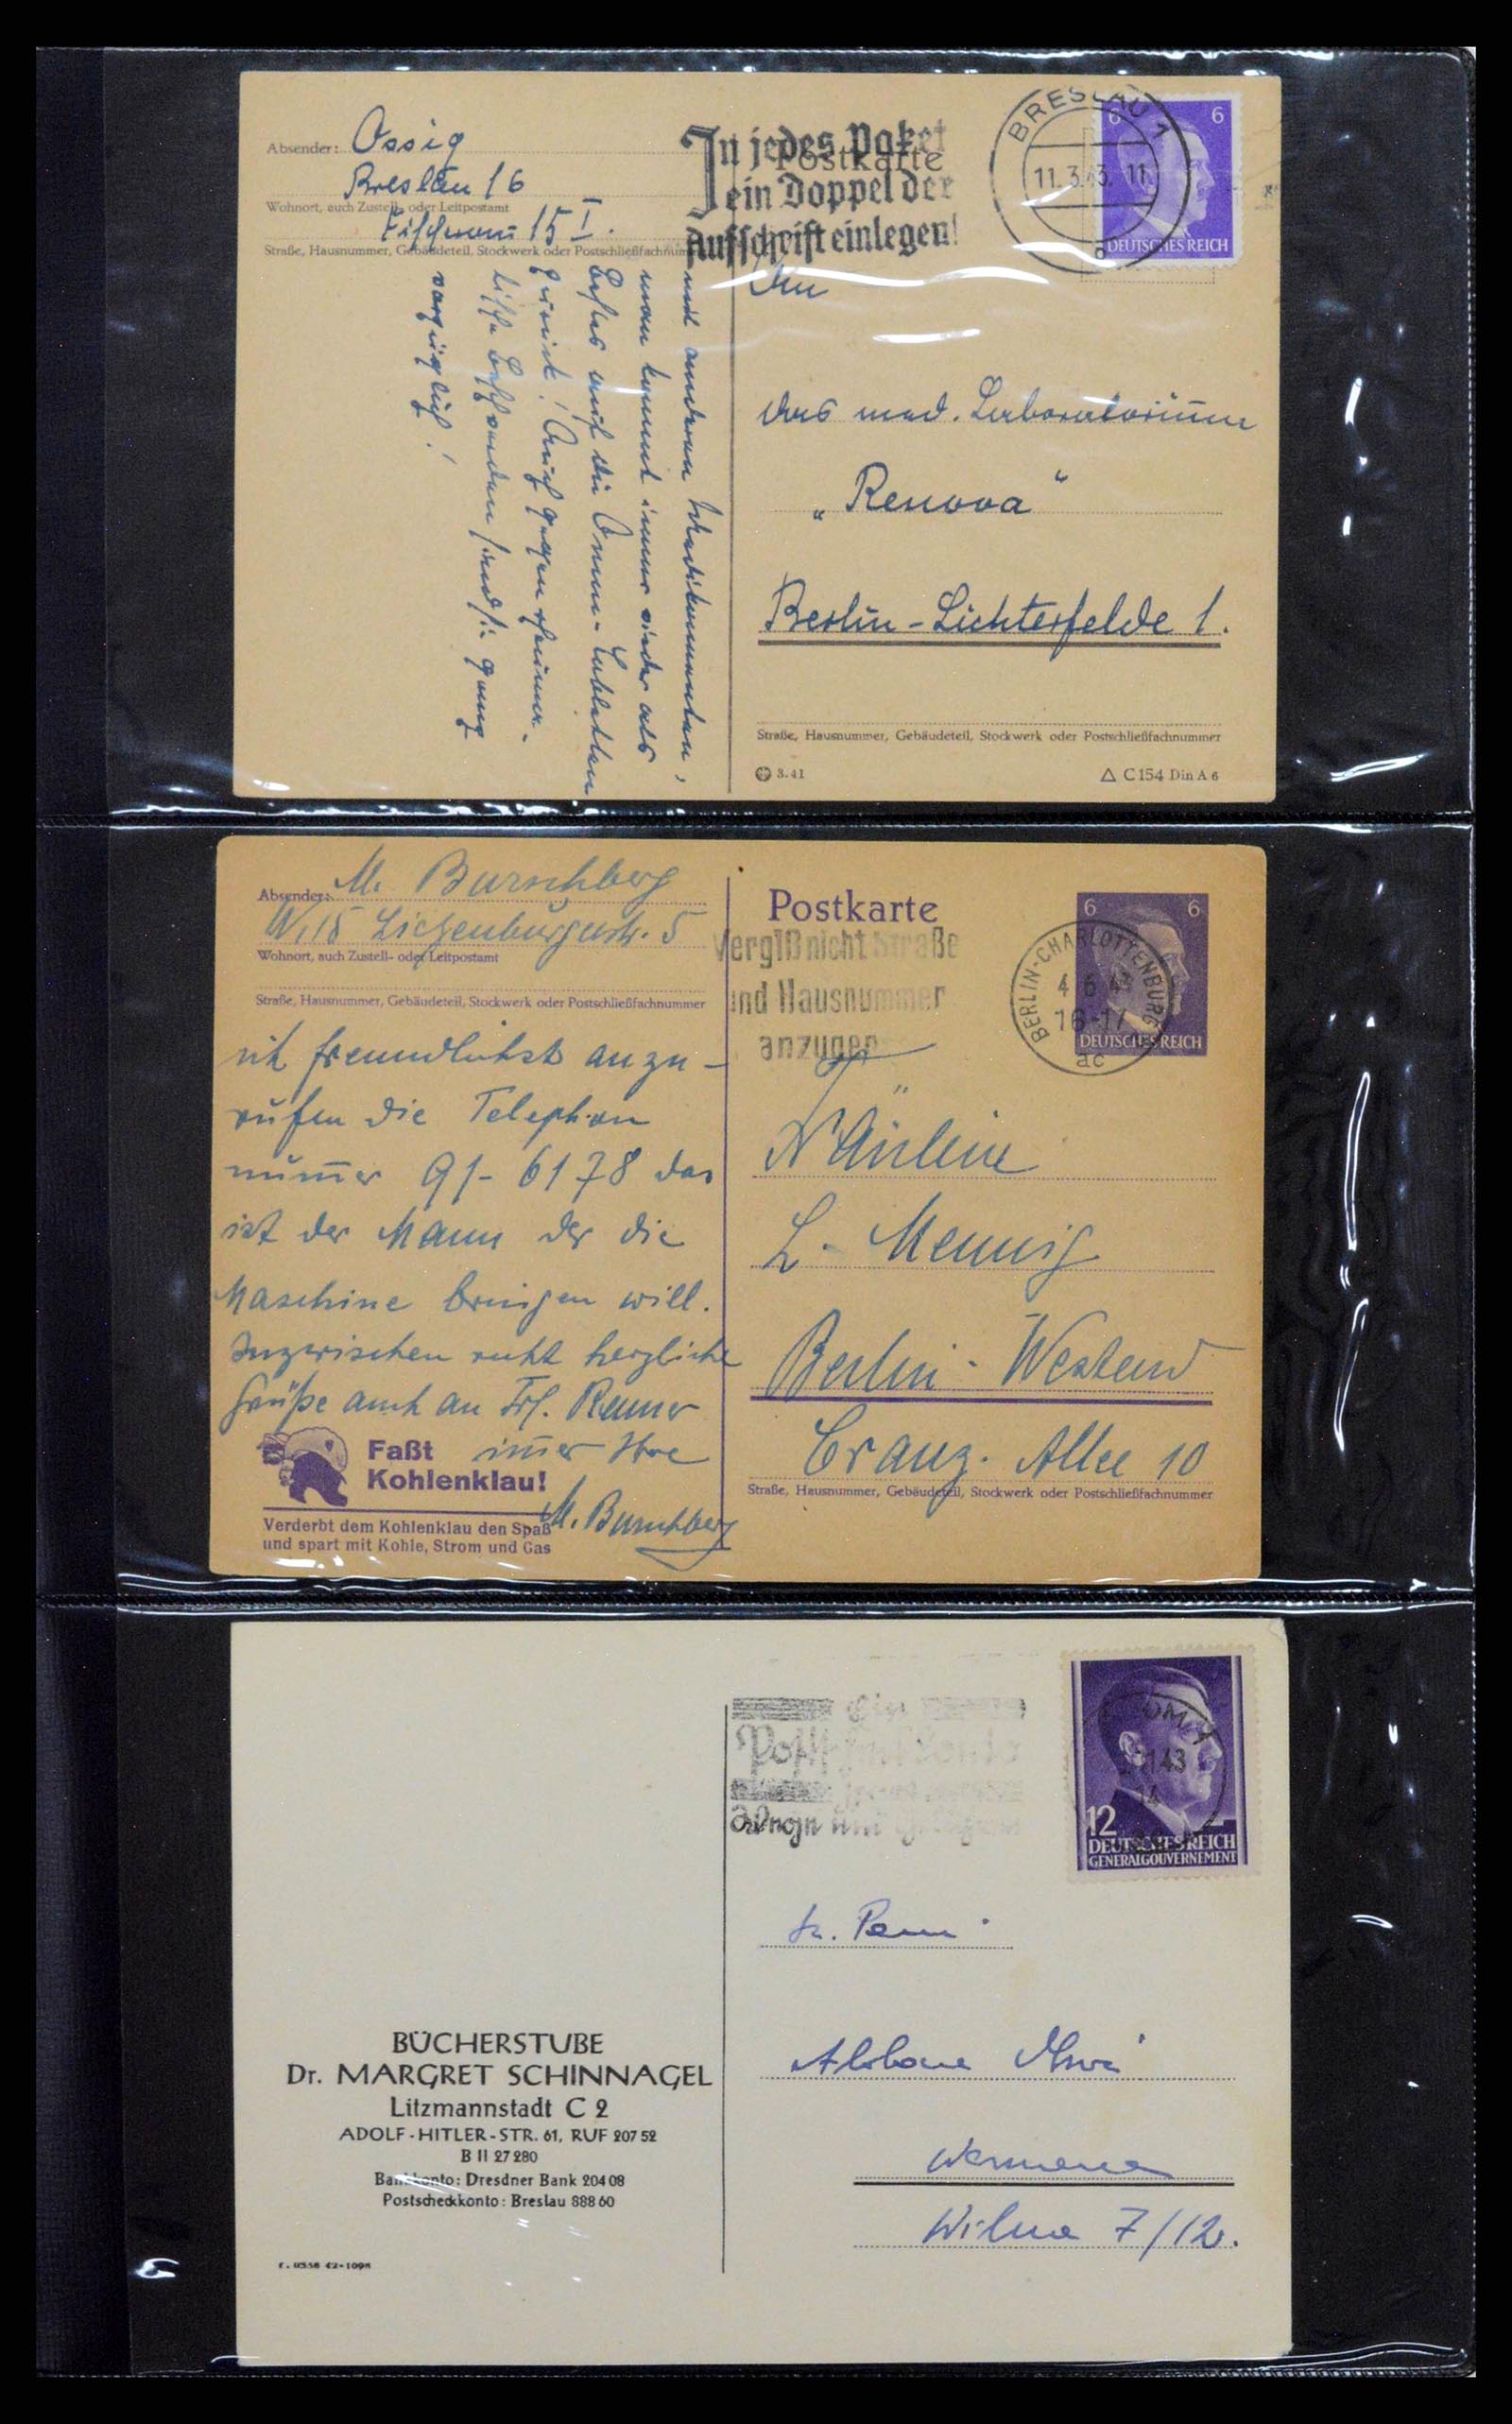 Absender: Ossig
Breslau 16
Wohnort, auch Zustell- oder Leitpostamt
15 I.
Straße, Hausnummer, Gebäudeteil, Stockwerk oder Postschließfachnummer
Postkarte
In jedes Paket
ein Doppel der
Aufschrift einlegen!
BRESLAU 1
11.3.43. 11
6 6
DEUTSCHES REICH
An
das med. Laboratorium
„Renova“
Berlin-Lichterfelde 1.
Straße, Hausnummer, Gebäudeteil, Stockwerk oder Postschließfachnummer
3.41
△ C 154 Din A 6
und anderen Medikamenten,
man kommt immer wieder als
Bestes auf die Tabletten
zurück! Auch gegen rheuma-
tische Beschwerden sind sie ganz
vorzüglich!
Absender: M. Burschberg
W. 15 Lietzenburgerstr. 5
Wohnort, auch Zustell- oder Leitpostamt
Straße, Hausnummer, Gebäudeteil, Stockwerk oder Postschließfachnummer
freundlichst anzu-
rufen die Telephon
nummer 91-6178 das
ist der Mann der die
Maschine bringen will.
Inzwischen recht herzliche
Grüße auch an Frl. Renner
immer Ihre
M. Burschberg
Faßt
Kohlenklau!
Verderbt dem Kohlenklau den Spaß
und spart mit Kohle, Strom und Gas
Postkarte
Vergiß nicht Straße
und Hausnummer
anzugeben
BERLIN-CHARLOTTENBURG
4 6 43
16-17
ac
6 6
DEUTSCHES REICH
Fräulein
L. Mennig
Berlin-Westend
Cranz. Allee 10
Straße, Hausnummer, Gebäudeteil, Stockwerk oder Postschließfachnummer
Ein
12
DEUTSCHES REICH
GENERALGOUVERNEMENT
43
14
BÜCHERSTUBE
Dr. MARGRET SCHINNAGEL
Litzmannstadt C 2
ADOLF-HITLER-STR. 61, RUF 207 52
B II 27 280
Bankkonto: Dresdner Bank 204 08
Postscheckkonto: Breslau 888 60
Wilna 7/12.